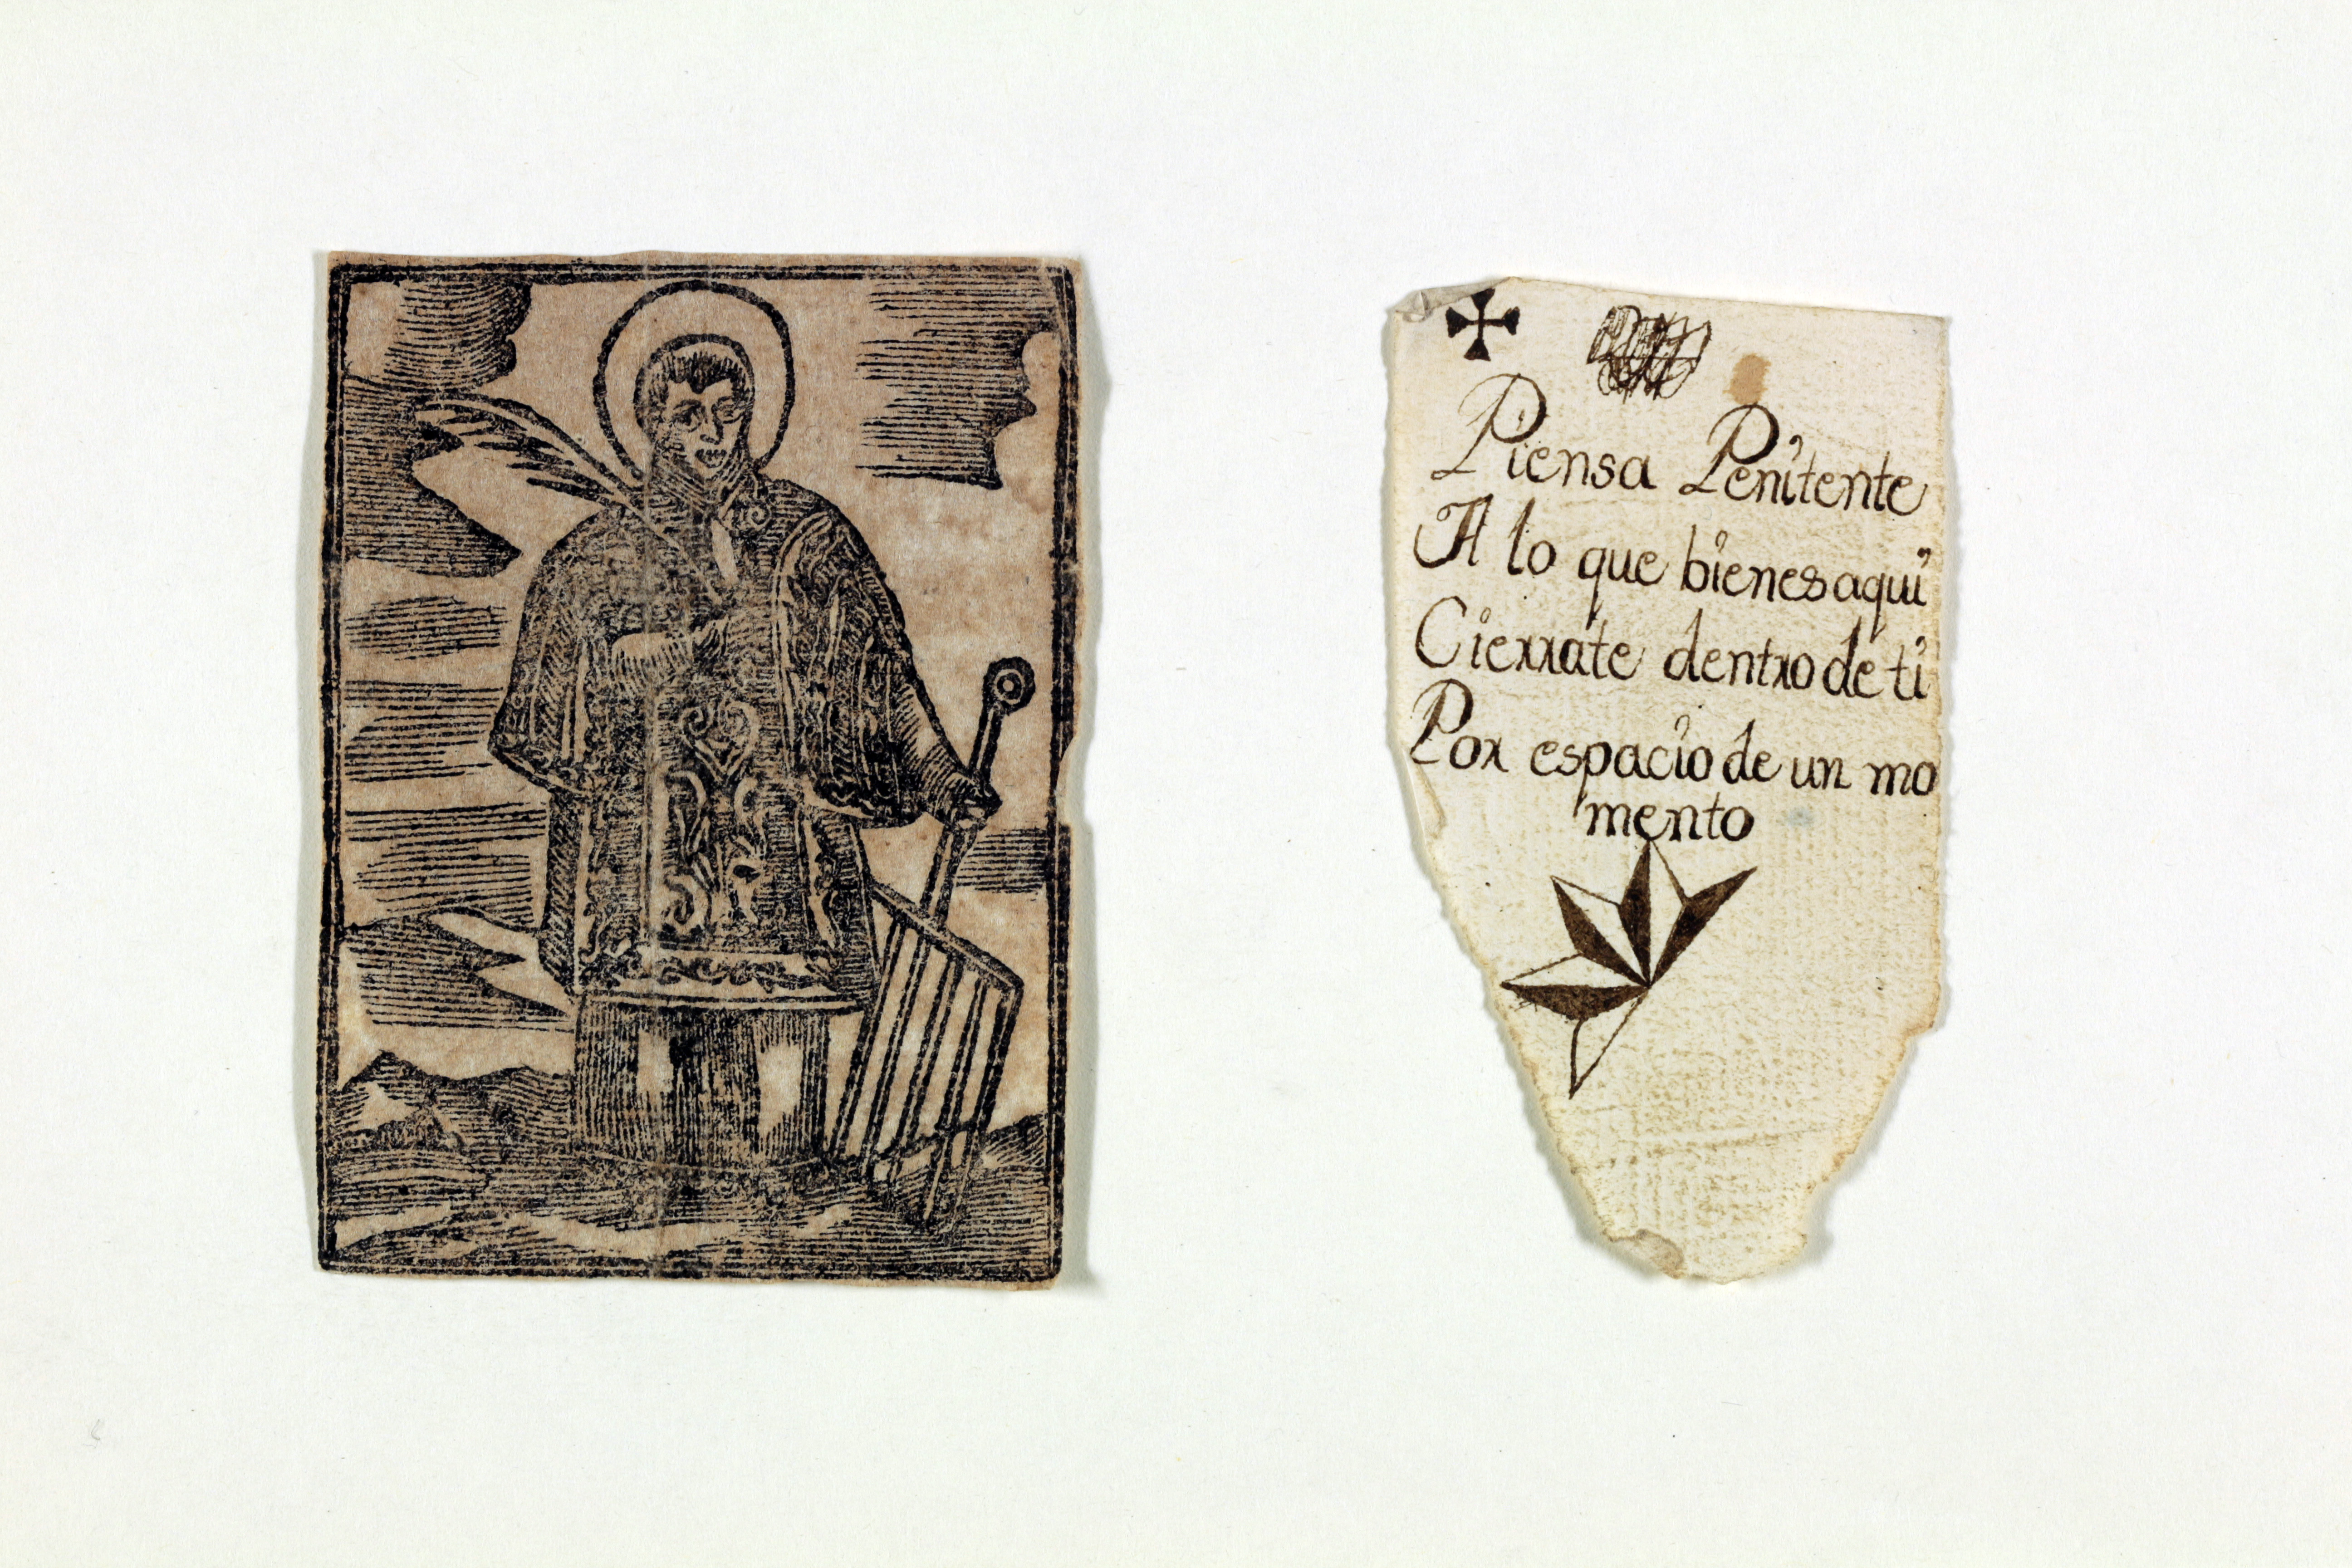 Piensa Penitente
A lo que bienes aqui
Cierrate dentro de ti
Por espacio de un mo
mento